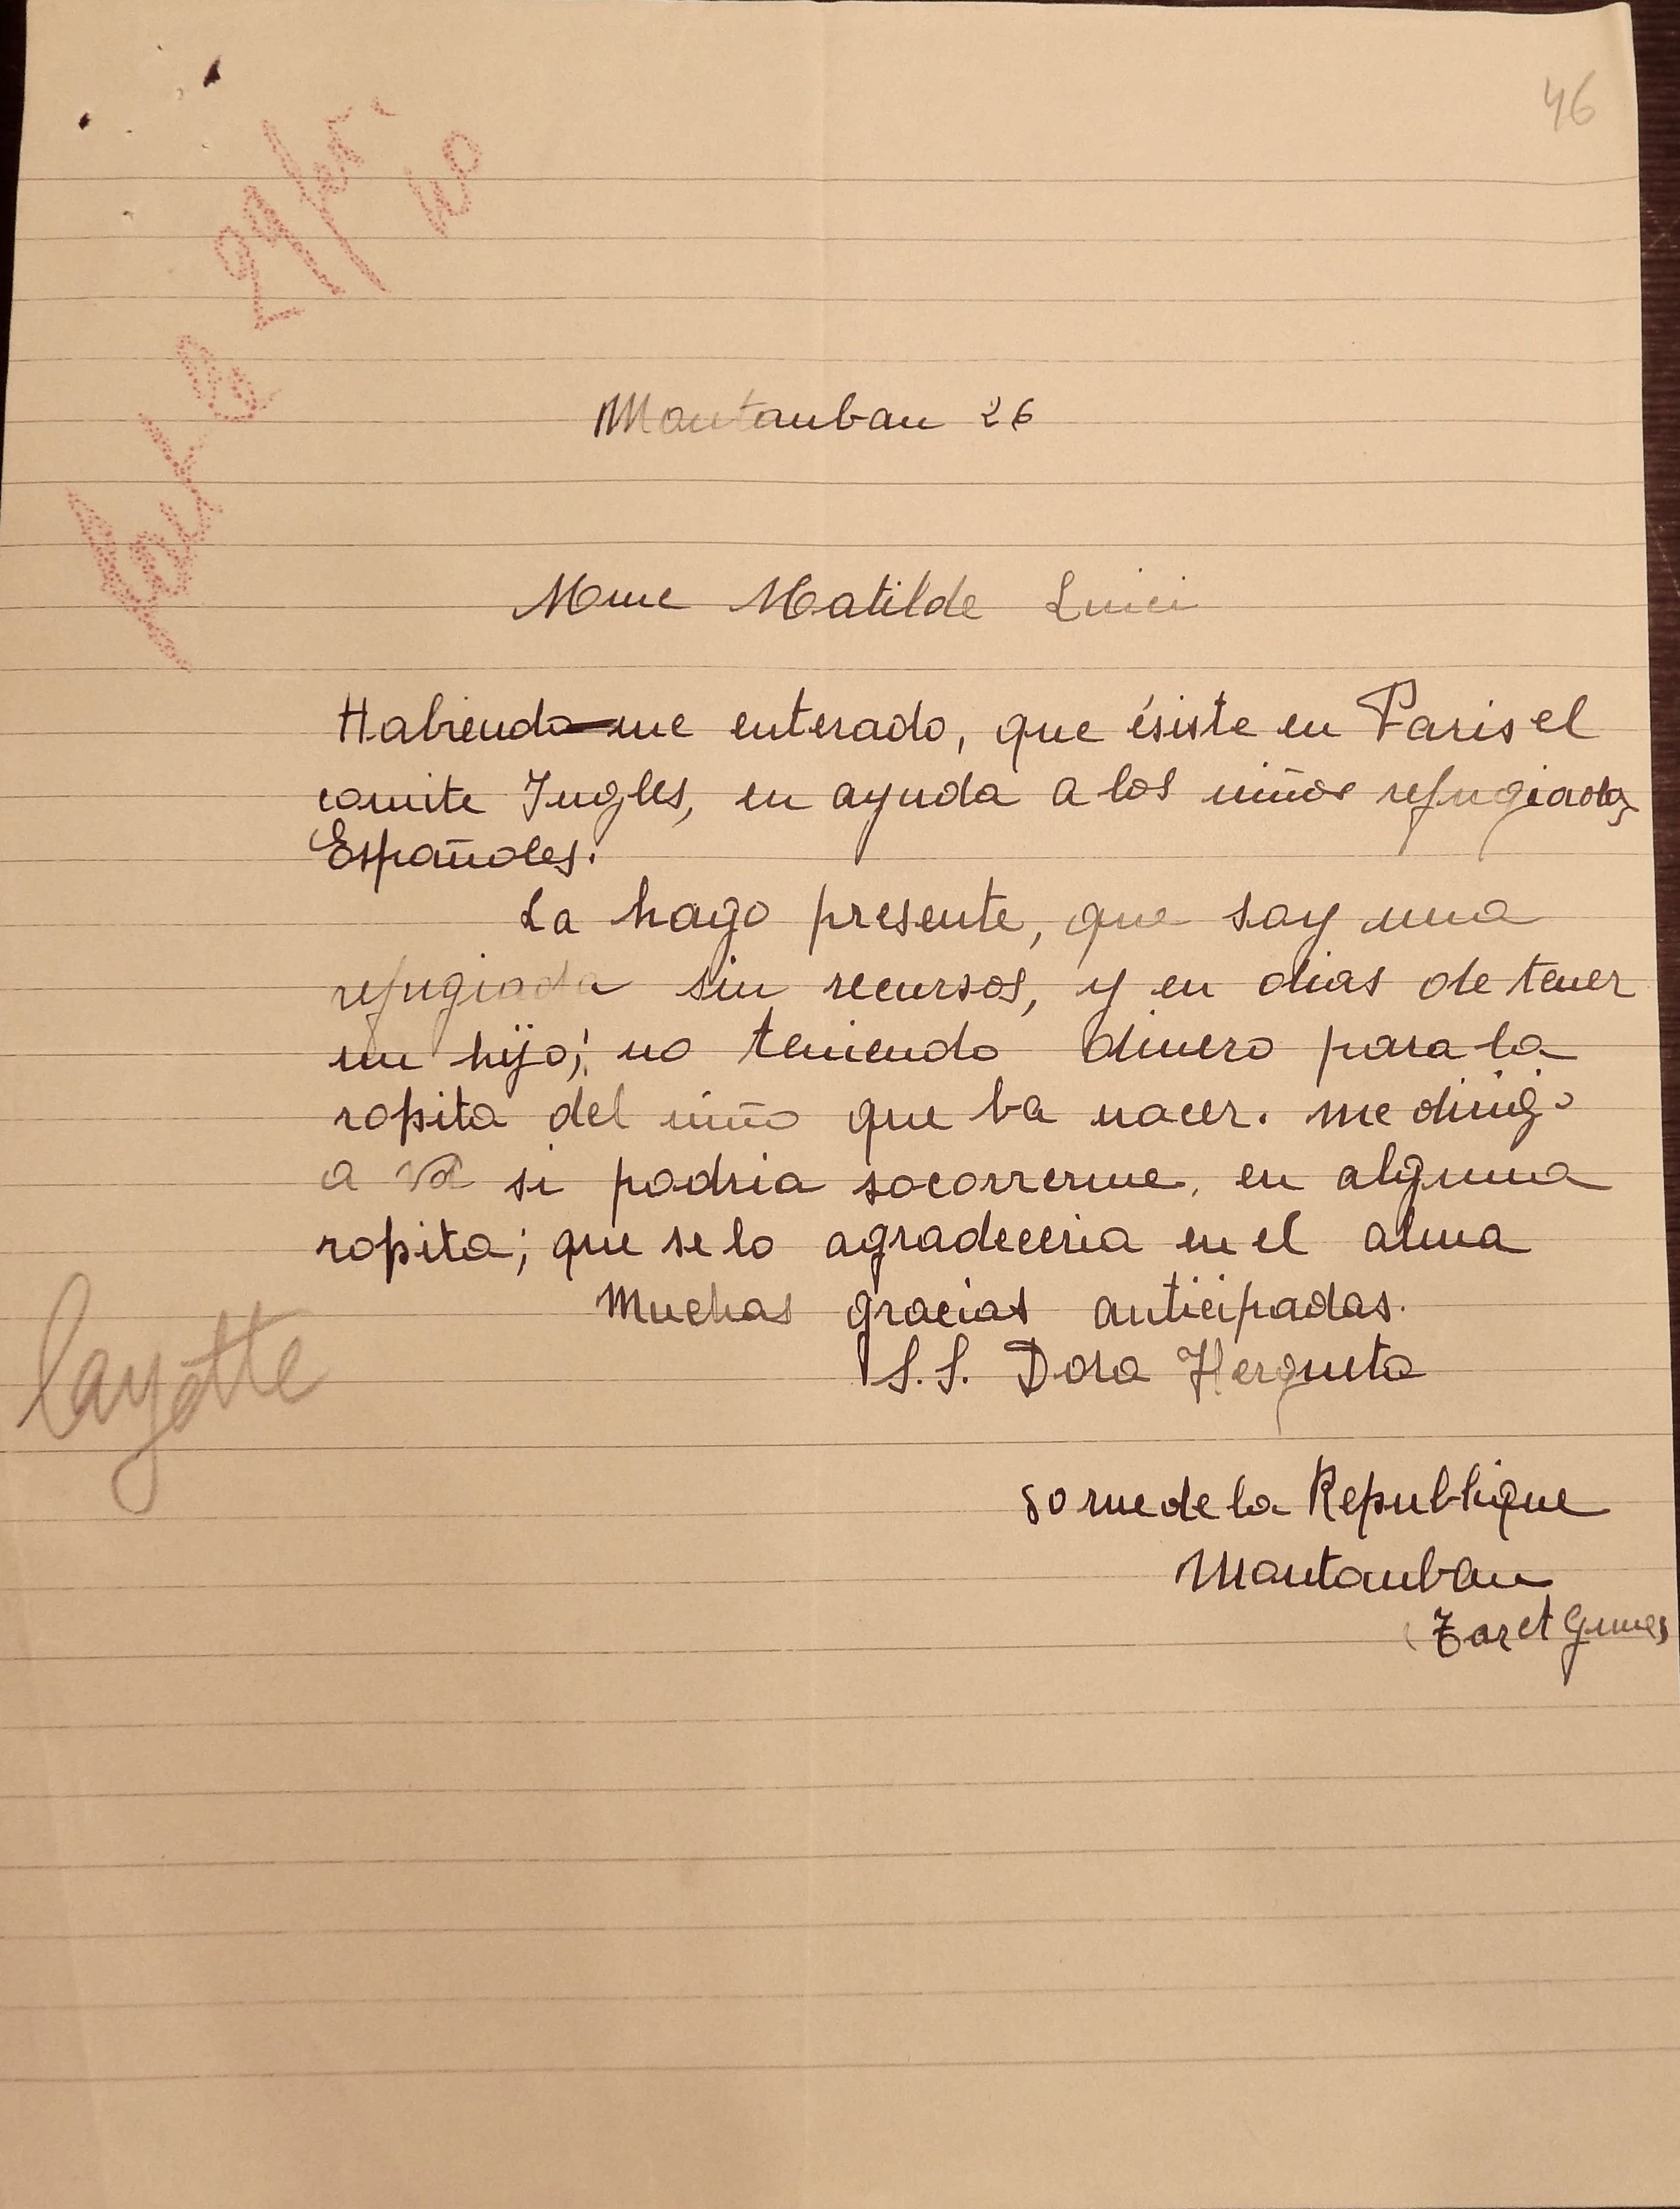 46
fait le 29/fev
40
Montauban 26
Mme Matilde
Habiendo-me enterado, que ésiste en Paris el
comite Ingles, en ayuda a los niños refugiados
Españoles.
La hago presente, que soy una
refugiada sin recursos, y en dias de tener
un hijo; no teniendo dinero para la
ropita del niño que ba nacer. me dirigo
a Vd si podria socorrerme, en alguna
ropita; que se lo agradeceria en el alma
Muchas gracias anticipadas.
S.S. Dora Hergueta
layette
50 rue de la Republique
Montauban
(Tar et